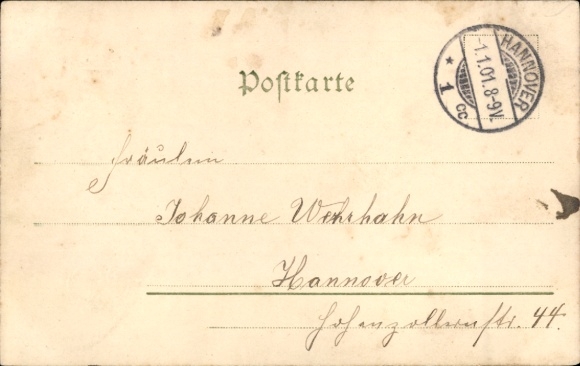 Postkarte
HANNOVER
1.1.01.8-9V.
* 1 cc
Fräulein
Johanne Wehrhahn
Hannover
Hohenzollernstr. 44.